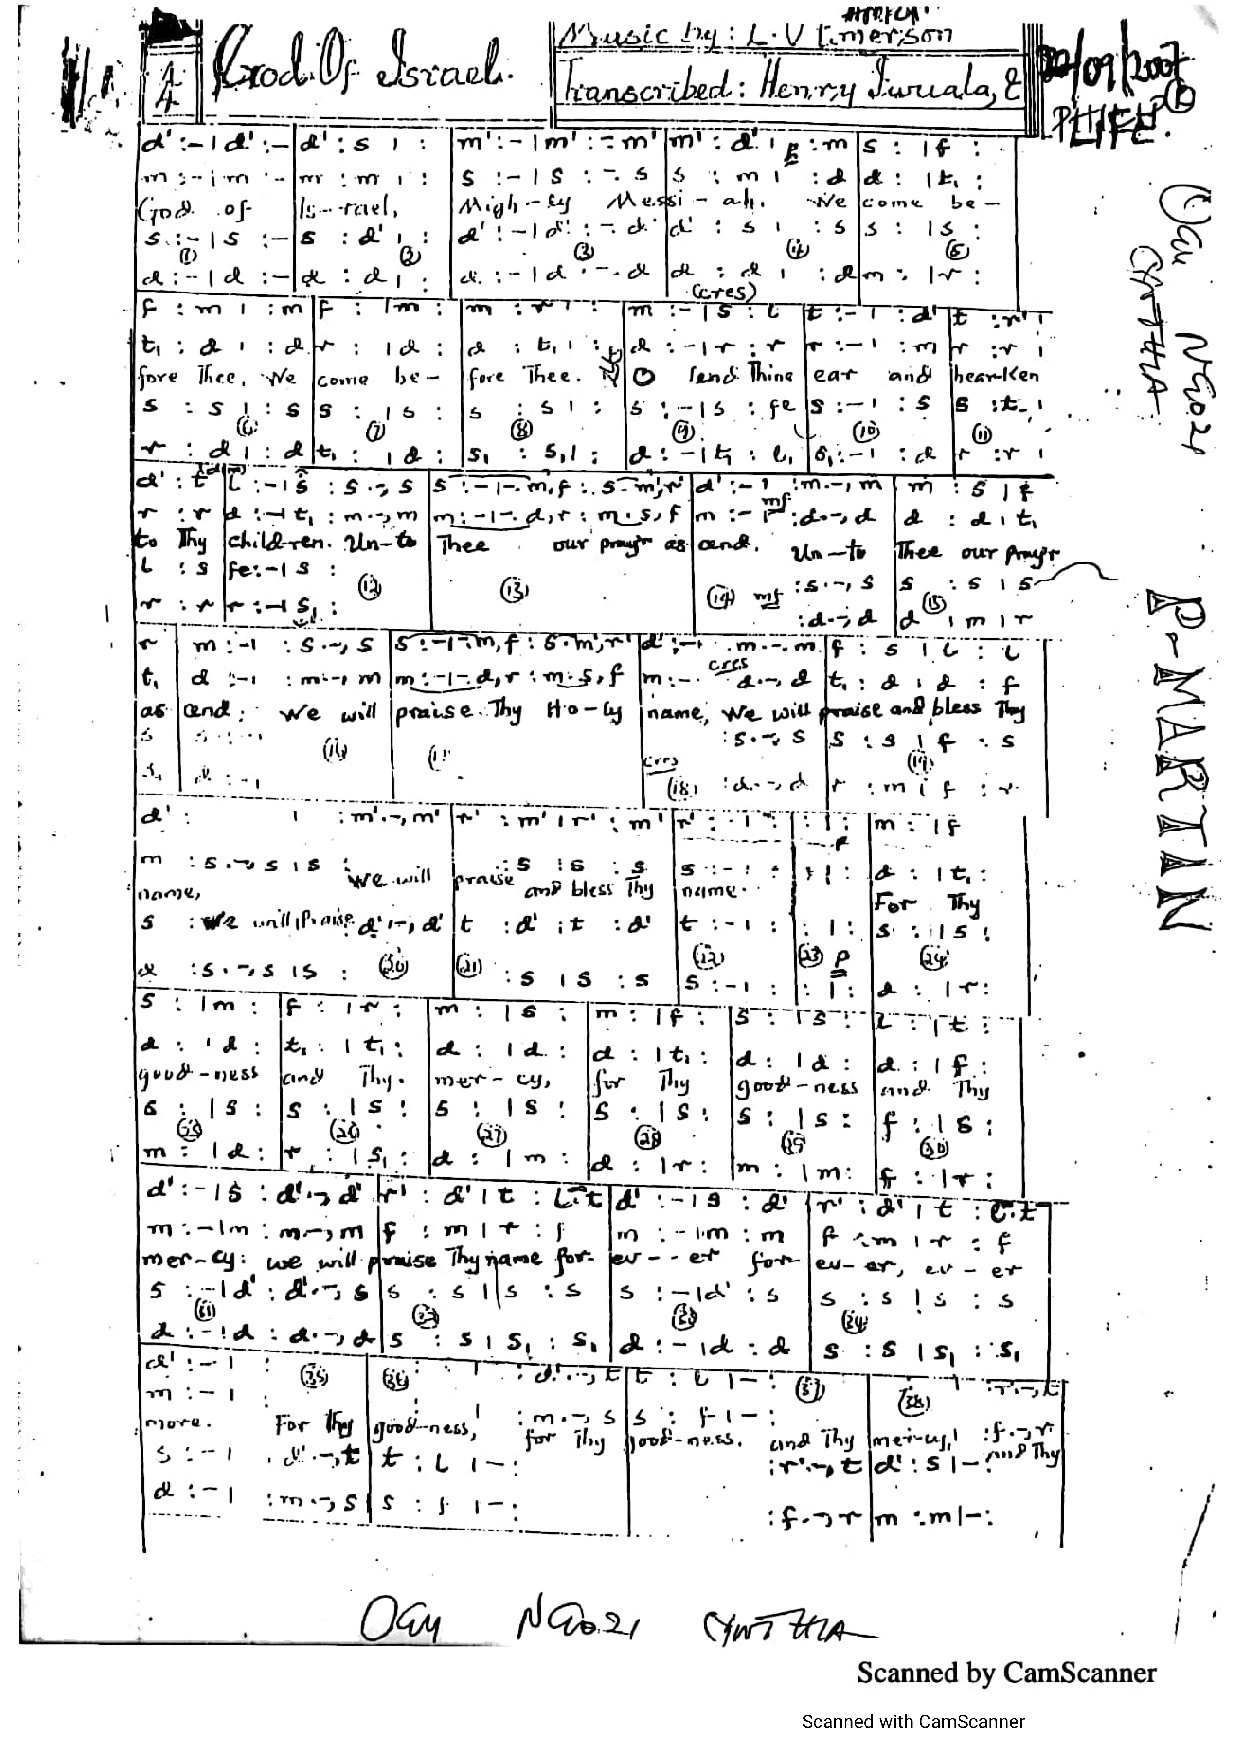 Music by: L. V Emerson
4/4 God Of Israel.
Transcribed: Henry Iwuala, E
d' :- | d' :- | d' : s | : | m' :- | m' :- m' | m' : d' | : m | s : | f :
m :- | m :- | m : m | : | s :- | s :- s | s : m | : d | d : | t₁ :
God of Is-rael, Migh-ty Messi-ah. We come be-
s :- | s :- | s : d' | : | d' :- | d' :- d' | d' : s | : s | s : | s :
(1) (2) (3) (4) (5)
d :- | d :- | d : d | : | d :- | d :- d | d : d | : d | m : | r :
(cres)
f : m | : m | f : | m : | m : r | : | m :- | s : l | t :- | : d' | t : r' |
t₁ : d | : d | r : | d : | d : t₁ | : | d :- | r : r | r :- | : m | r : r |
fore Thee. We come be- fore Thee. O lend Thine ear and hearken
s : s | : s | s : | s : | s : s | : | s :- | s : fe | s :- | : s | s : t |
(6) (7) (8) (9) (10) (11)
r : d | : d | t₁ : | d : | s₁ : s₁ | : | d :- | t₁ : l₁ | s₁ :- | : d | r : r |
d' : t | l :- | s : s .-, s | s :- | -. m, f : s . m', r' | d' :- | : m .-, m | m : s | f
r : r | d :- | t₁ : m .-, m | m :- | -. d, r : m . s, f | m :- | mf : d .-, d | d : d | t₁
to Thy children. Un-to Thee our pray'r as cend. Un-to Thee our pray'r
l : s | fe :- | s : (12) (13) (14) mf : s .-, s | s : s | s
r : r | r :- | s₁ : : d .-, d | d (15) : m | r
r | m :- | : s .-, s | s :- | -. m, f : s . m', r' | d' :- | : m .-, m | f : s | l : l
t₁ | d :- | : m .-, m | m :- | -. d, r : m . s, f | m :- cres d .-, d | t₁ : d | d : f
as cend; We will praise Thy Ho-ly name, We will praise and bless Thy
: s .-, s | s : s | f : s
(16) cres (18) : d .-, d | r : m | f : r
(19)
d' : | : m' .-, m' | r' : m' | r' : m' | r' :- | : | : | : | m : | f
m : s .-, s | s : : s | s : s | s :- | : | : | : | d : | t₁ :
name, We will praise and bless Thy name. For Thy
s : We will Praise d' .-, d' | t : d' | t : d' | t :- | : | : | : | s : | s :
(20) (21) (22) (23) p (24)
d : s .-, s | s : : s | s : s | s :- | : | : | : | d : | r :
s : | m : | f : | r : | m : | s : | m : | f : | s : | s : | l : | t :
d : | d : | t₁ : | t₁ : | d : | d : | d : | t₁ : | d : | d : | d : | f :
good-ness and Thy. mer-cy, for Thy good-ness and Thy
s : | s : | s : | s : | s : | s : | s : | s : | s : | s : | f : | s :
(25) (26) (27) (28) (29) (30)
m : | d : | r : | s₁ : | d : | m : | d : | r : | m : | m : | f : | r :
d' :- | s : d' .-, d' | r' : d' | t : l . t | d' :- | s : d' | r' : d' | t : l . t
m :- | m : m .-, m | f : m | r : f | m :- | m : m | f : m | r : f
mer-cy: we will praise Thy name for- ev--er for ev-er, ev-er
s :- | d' : d' .-, s | s : s | s : s | s :- | d' : s | s : s | s : s
(31) (32) (33) (34)
d :- | d : d .-, d | s : s | s₁ : s₁ | d :- | d : d | s : s | s₁ : s₁
d' :- | : (35) (36) : | : d' .-, t | t : l | - : (37) | : r' .-, t
m :- | : m .-, s | s : f | - : (38) : f .-, r
more. For Thy good-ness, for Thy good-ness. and Thy mercy, and Thy
s :- | : d' .-, t | t : l | - : : r' .-, t | d' : s | - :
d :- | : m .-, s | s : f | - : : f .-, r | m : m | - :
P-MARTIN
Scanned by CamScanner
Scanned with CamScanner